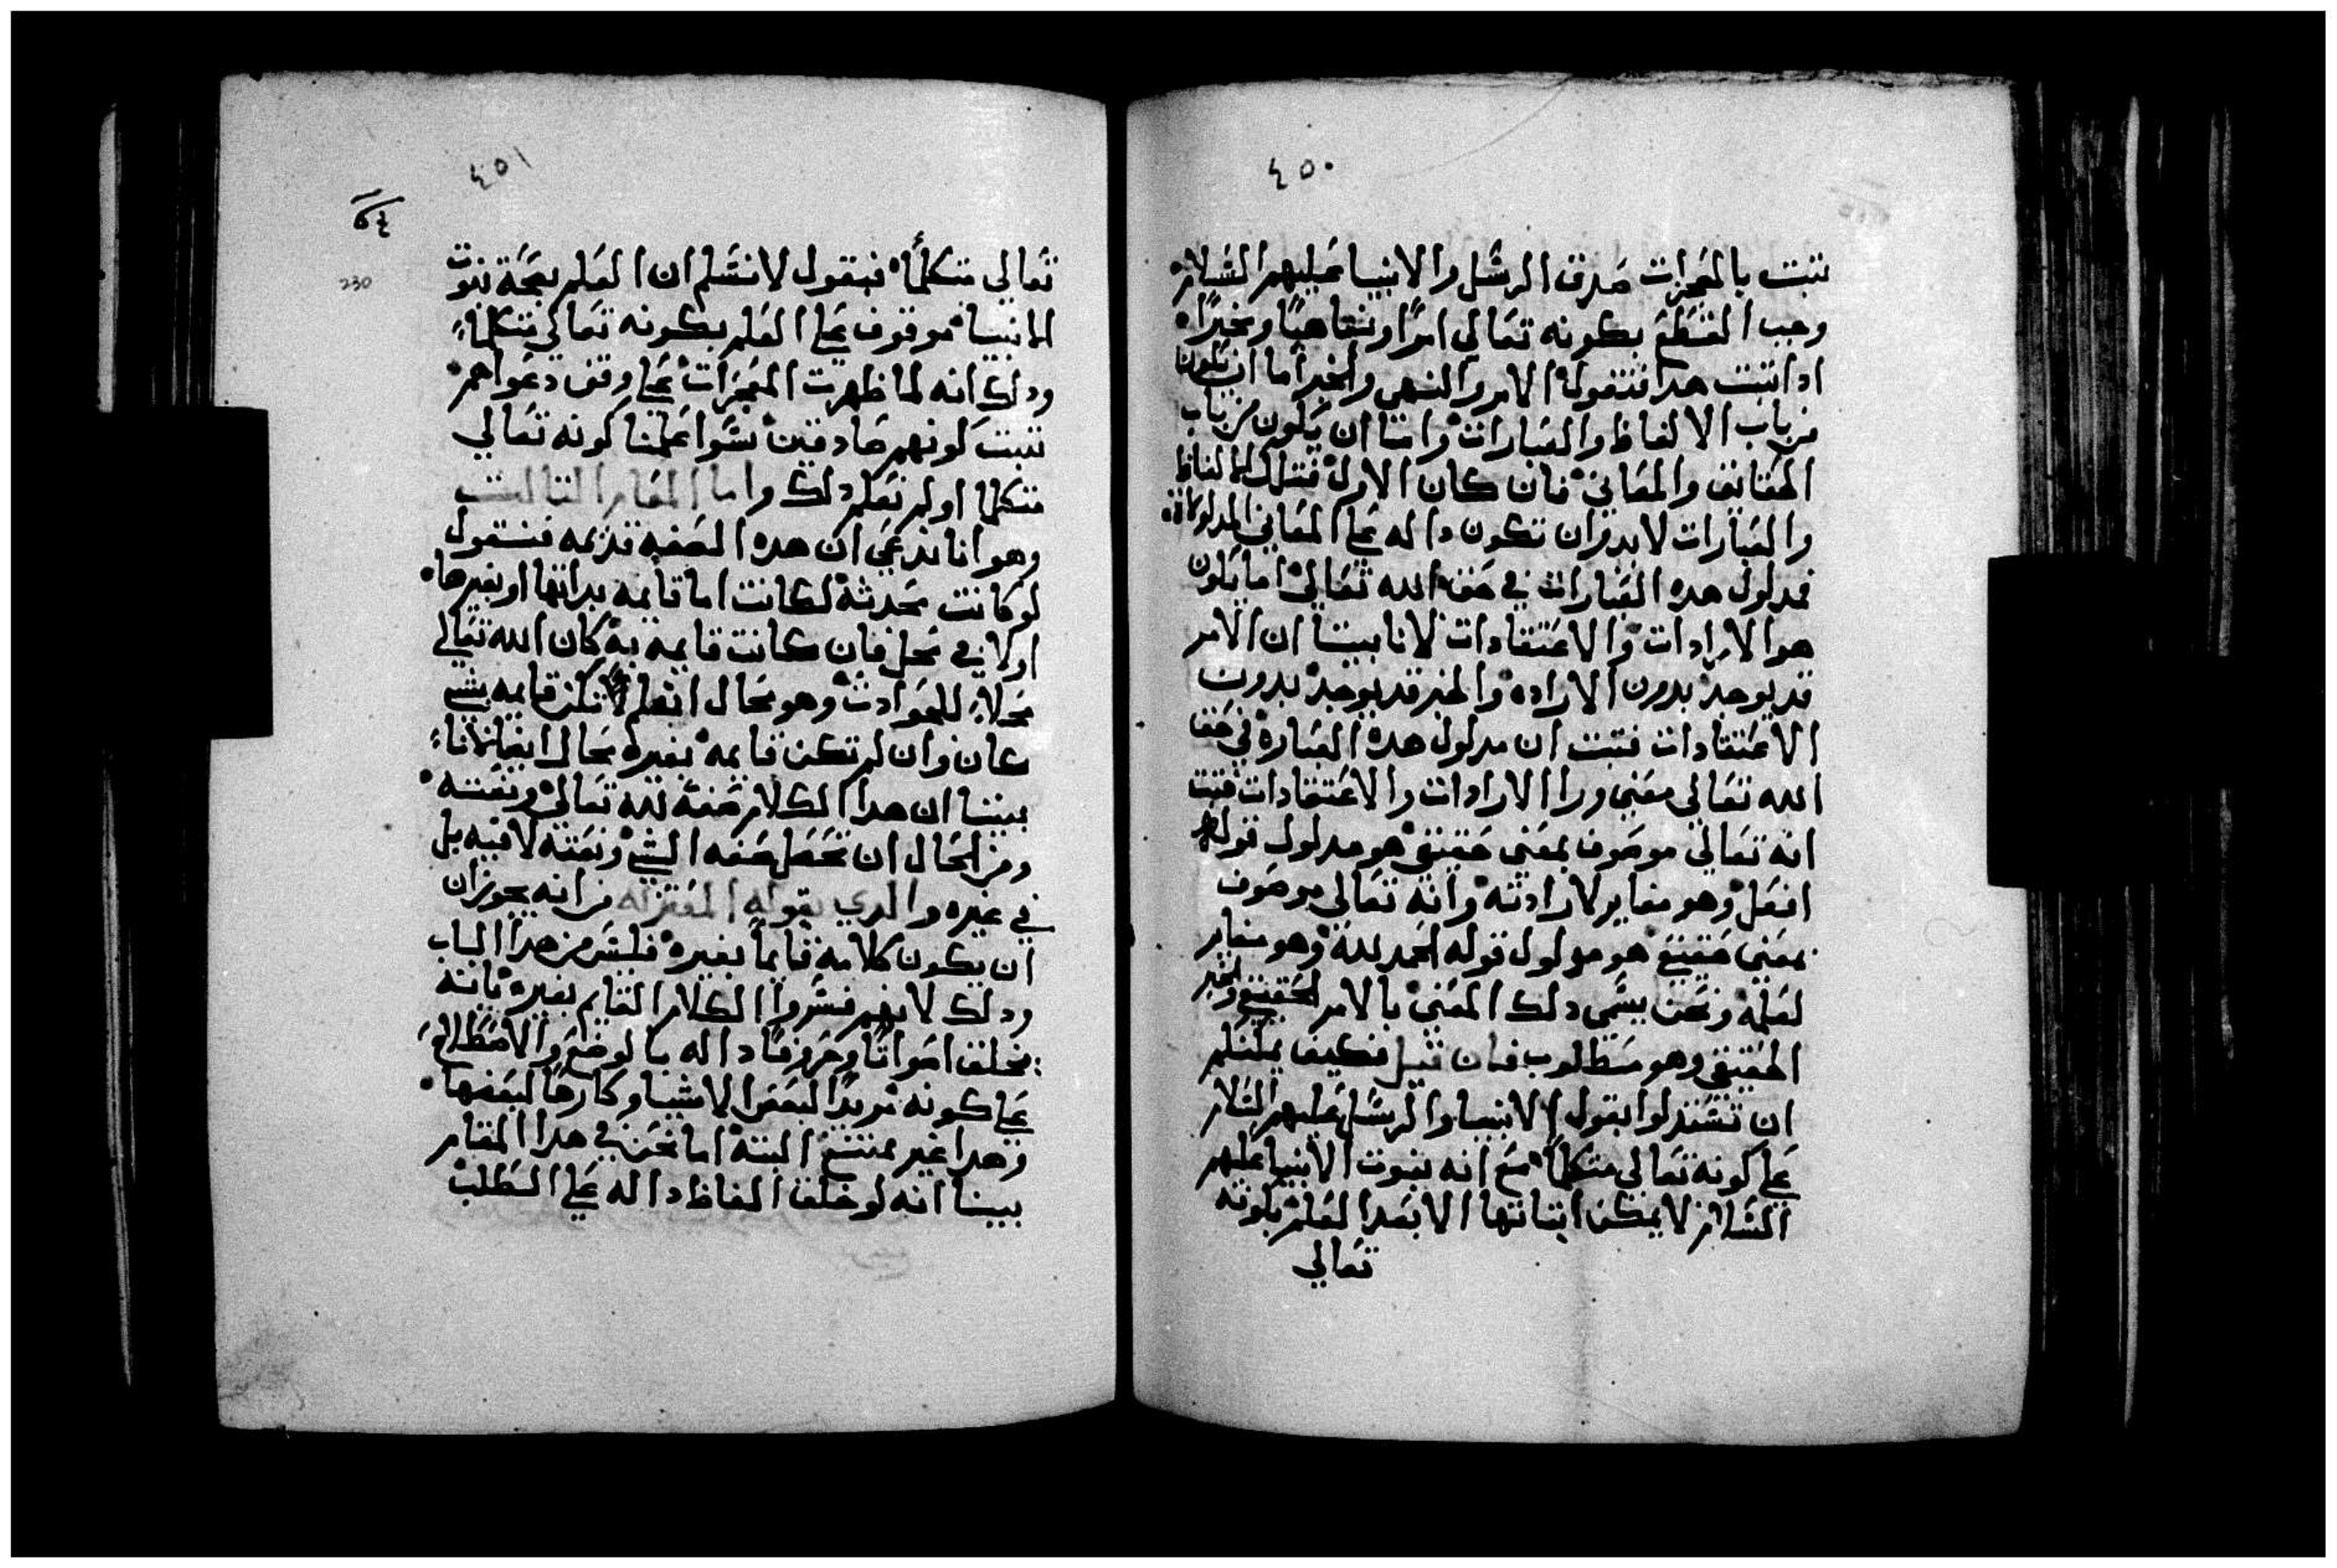 ٤٥٠
تتبت بالمعجزات صدق الرسل والانبيا عليهم السلام
وجب القطع بكونه تعالى امرًا وينهاهيًا ومخبرًا
ادا تبت هدا فنقول الامر والنهى والخبر اما ان تكون
من باب الالفاظ والعبارات واما ان يكون من باب
الحقايق والمعاني فان كان الاول فتلك الالفاظ
والعبارات لابد وان تكون داله على المعاني
فمدلول هده العبارات في حق الله تعالى اما يكون
هو الارادات والاعتقادات لانا بينا ان الامر
قد يوجد بدون الاراده والخبر قد يوجد بدون
الاعتقادات فتبت ان مدلول هده العباره في حق
الله تعالى معني ورا الارادات والاعتقادات فتبت
انه تعالى موصوف بمعنى حقيقي هو مدلول قوله
افعل وهو مغاير لارادته وانه تعالى موصوف
بمعني حقيقي هو مولول قوله الحمد لله وهو مغاير
لعلمه ونحن يسمى دلك المعني بالامر الحقيقي والخبر
الحقيقي وهو مطلوب فان قيل فكيف يمكنكم
ان تستدلوا بقول الانبيا والرسل عليهم السلام
على كونه تعالى متكلمًا مع انه نبوت الانبيا عليهم
السلام لا يمكن اثباتها الا بعد العلم بكونه
تعالى
٤٥١
٥٤
230
تعالى متكلمًا فيقول لا نسلم ان العلم بصحة نبوت
الانبيا موقوف على العلم بكونه تعالى متكلما
ودلك انه لما ظهرت المعجزات على وفق دعواهم
تبت كونهم صادقين سوا علمنا كونه تعالي
متكلما اولم نعلم دلك واما المقام التالت
وهو انا ندعي ان هده الصفه قديمه فنقول
لو كانت محدثة لكانت اما قايمه بداتها او بغيرها
اولا في محل فان كانت قايمه به كان الله تعالى
محلا للحوادث وهو محال لم تكن قايمه بشي
كان وان لم تكن قايمه بغيره محال ايضا لانا
بينا ان هدا الكلام صفة لله تعالى ونعته
ومن المحال ان تحصل صفه الشي ونعته لا فيه بل
في غيره والدي يقوله المعتزله من انه يجوز ان
ان يكون كلامه قايمًا بغيره فليس من هدا الباب
ودلك لانهم فسروا الكلام القايم بغيره بانه
يخلق اصواتا وحروفًا داله بالوضع والاصطلاح
على كونه مريدًا لبعض الاشيا وكارهًا لبعضها
وهدا غير ممتنع البتة اما نحن في هدا المقام
بيينا انه لو خلق الفاظ داله على الطلب